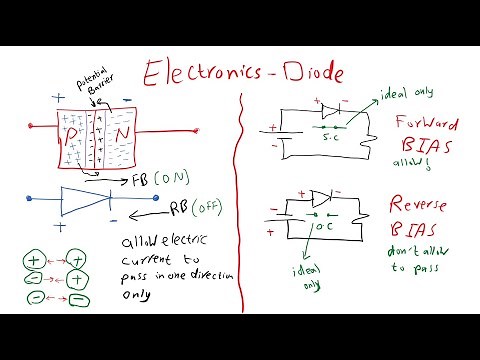 Electronics - Diode
potential
Barrier
+ -
P N
FB (ON)
RB (OFF)
+ -
allow electric
current to
pass in one direction
only
+ +
- +
- -
ideal only
+ -
+
-
S.C
Forward
BIAS
allow
+ -
-
+
O C
ideal
only
Reverse
BIAS
don't allow
to pass